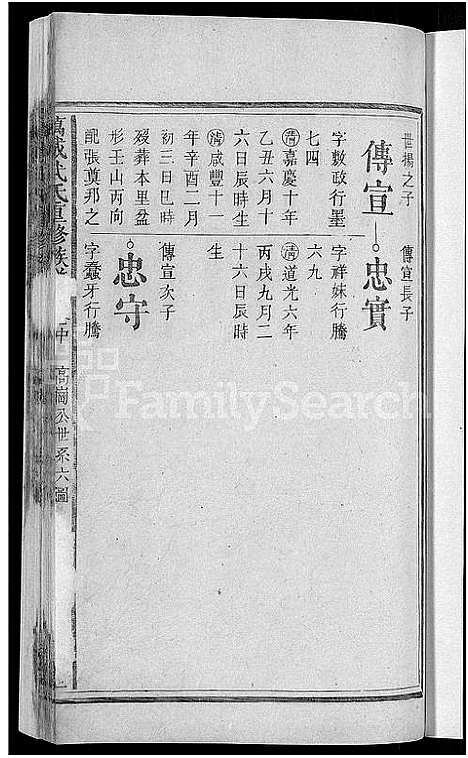 世揚之子
傳宣
字敷政行墨
七四
清嘉慶十年
乙丑六月十
六日辰時生
清咸豐十一
年辛酉二月
初三日巳時
歿葬本里盆
形王山丙向
配張奠邦之
傳宣長子
忠實
字祥妹行騰
六九
清道光六年
丙戌九月二
十六日辰時
生
傳宣次子
忠守
字蠶牙行騰
氏重修族
中
高崗公世系六圖
FamilySearch